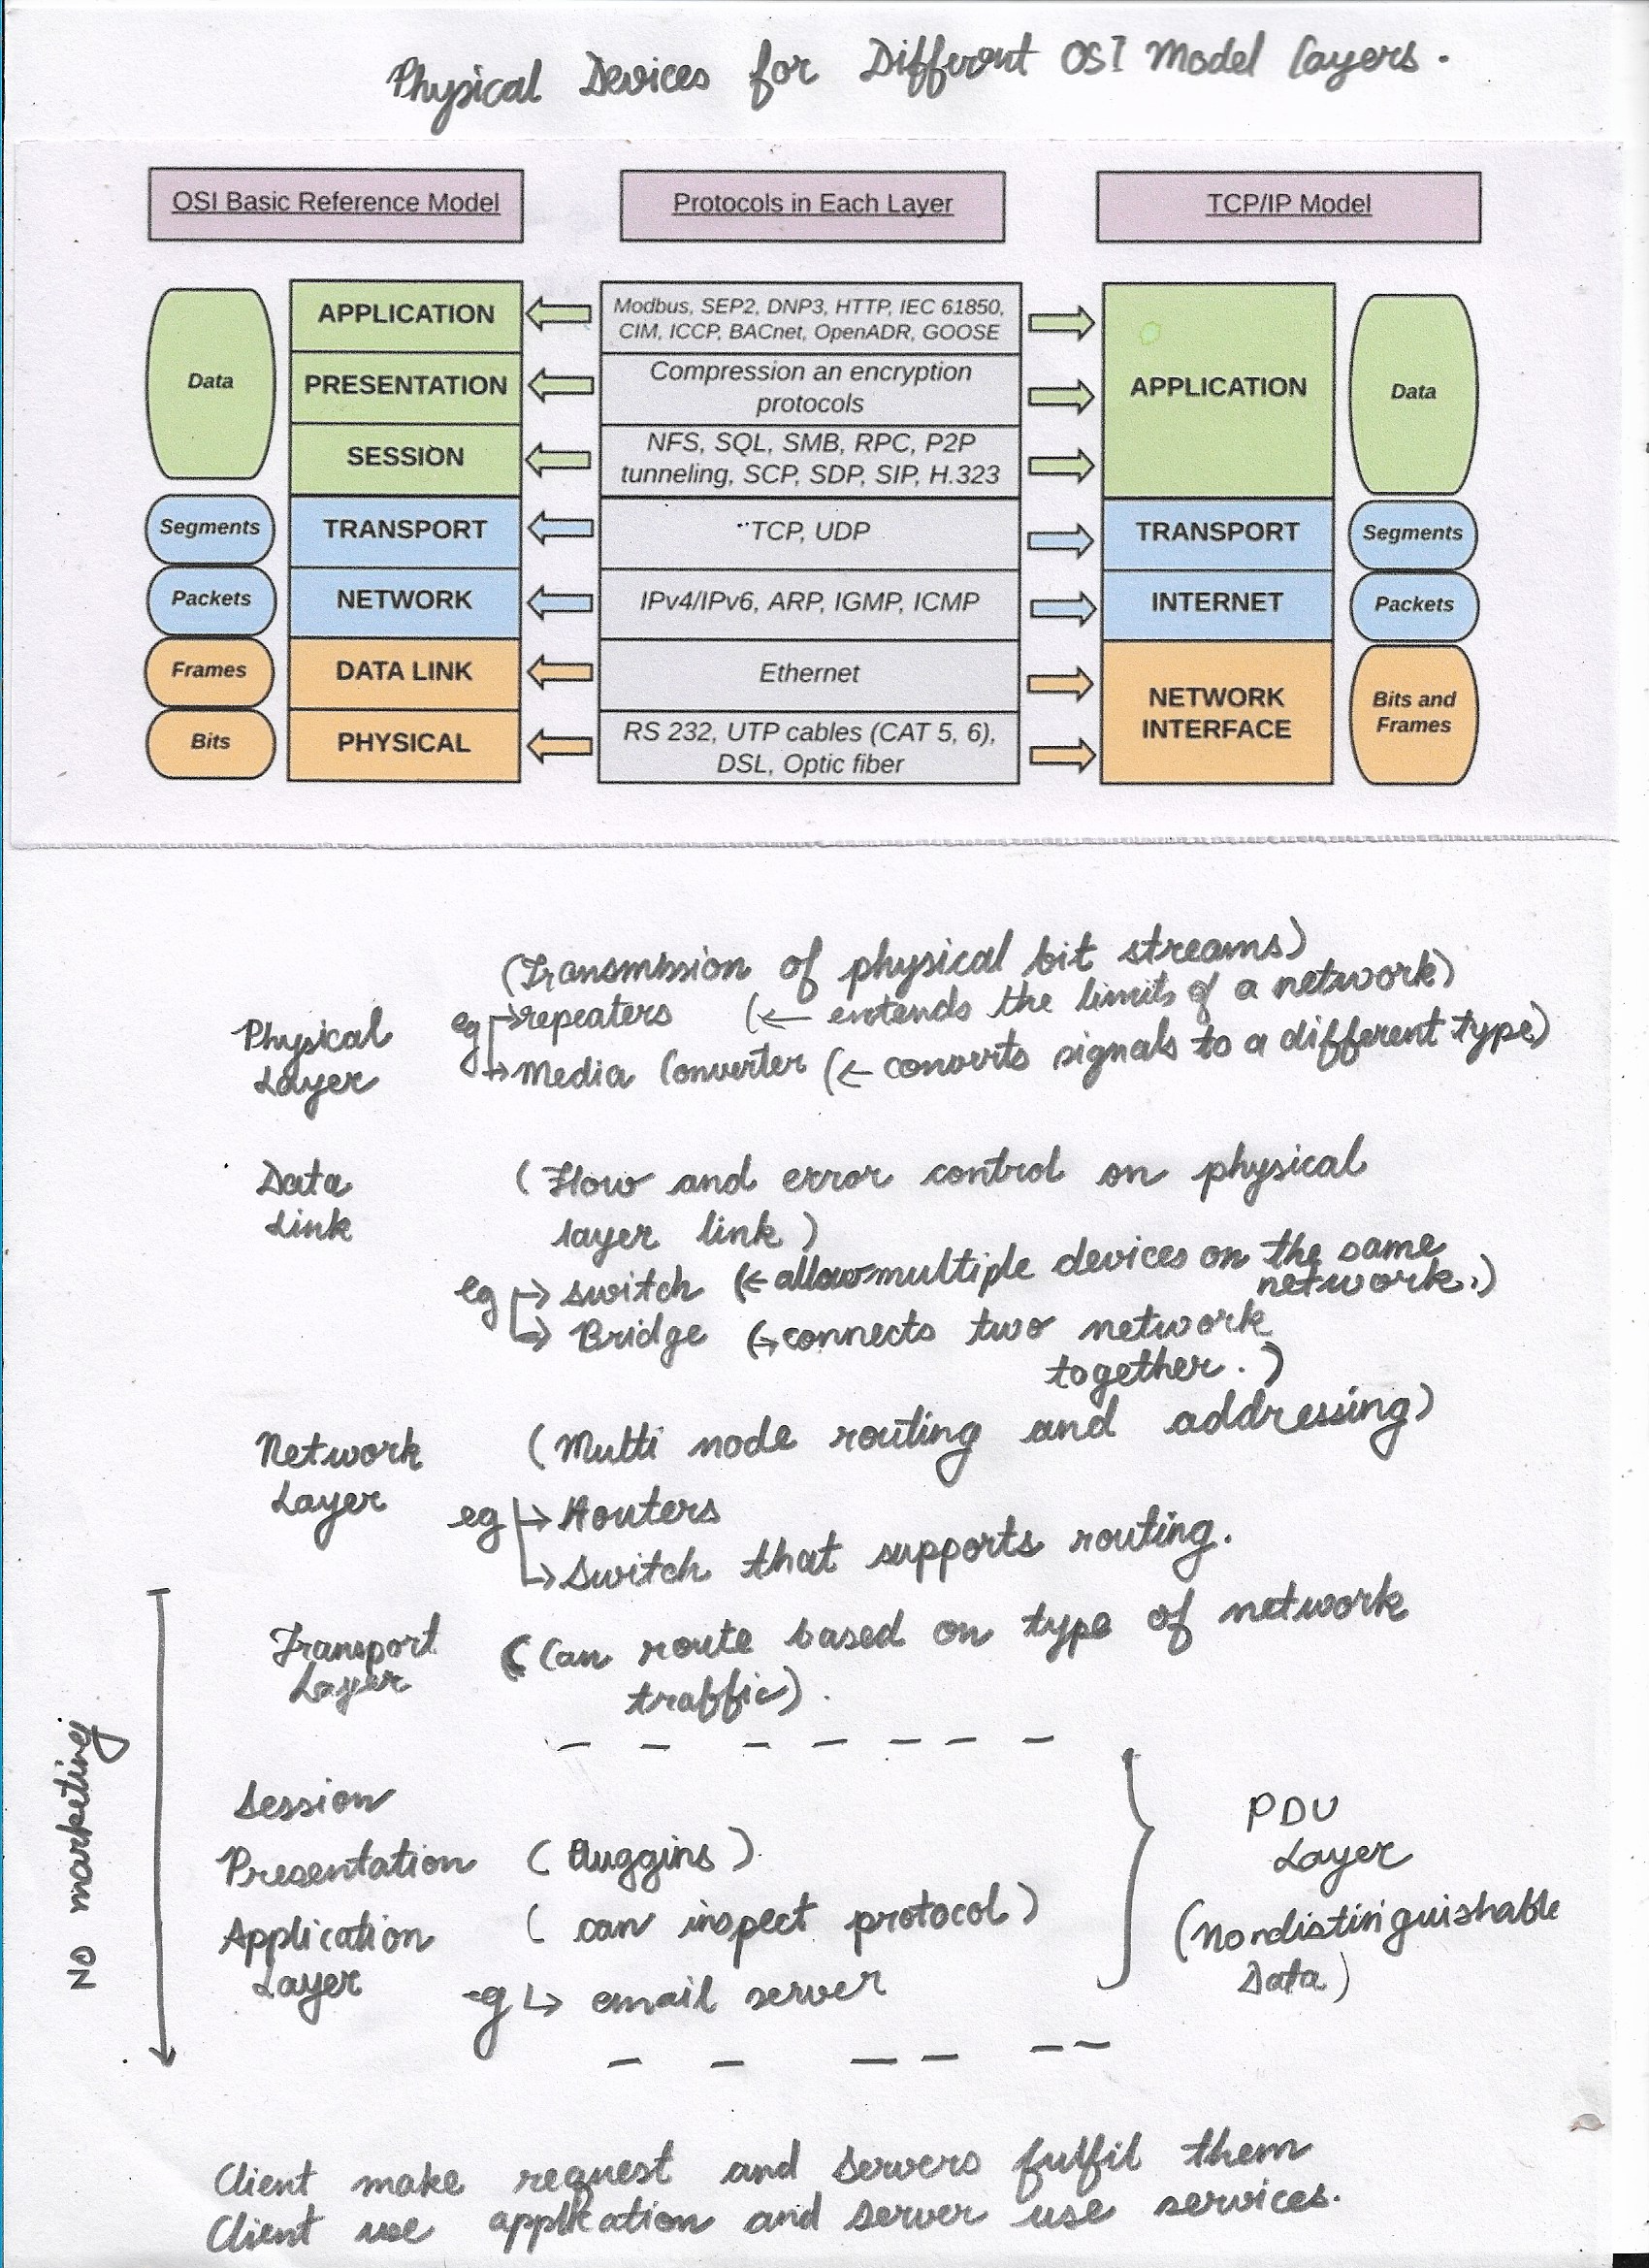 Physical Devices for Different OSI Model Layers.
OSI Basic Reference Model
Protocols in Each Layer
TCP/IP Model
Data
APPLICATION
Modbus, SEP2, DNP3, HTTP, IEC 61850,
CIM, ICCP, BACnet, OpenADR, GOOSE
APPLICATION
Data
PRESENTATION
Compression an encryption
protocols
SESSION
NFS, SQL, SMB, RPC, P2P
tunneling, SCP, SDP, SIP, H.323
Segments
TRANSPORT
TCP, UDP
TRANSPORT
Segments
Packets
NETWORK
IPv4/IPv6, ARP, IGMP, ICMP
INTERNET
Packets
Frames
DATA LINK
Ethernet
NETWORK
INTERFACE
Bits and
Frames
Bits
PHYSICAL
RS 232, UTP cables (CAT 5, 6),
DSL, Optic fiber
(Transmission of physical bit streams)
Physical
Layer
eg → repeaters (← extends the limits of a network)
→ Media Converter (← converts signals to a different type)
Data
Link
(Flow and error control on physical
layer link)
eg → switch (← allow multiple devices on the same
network.)
→ Bridge (→ connects two network
together.)
Network
Layer
(Multi node routing and addressing)
eg → Routers
→ Switch that supports routing.
Transport
Layer
(Can route based on type of network
traffic).
No marketing
Session
Presentation (Pluggins)
Application
Layer
(can inspect protocol)
eg ↳ email server
PDU
Layer
(No distinguishable
Data)
Client make request and servers fulfil them
Client use application and server use services.